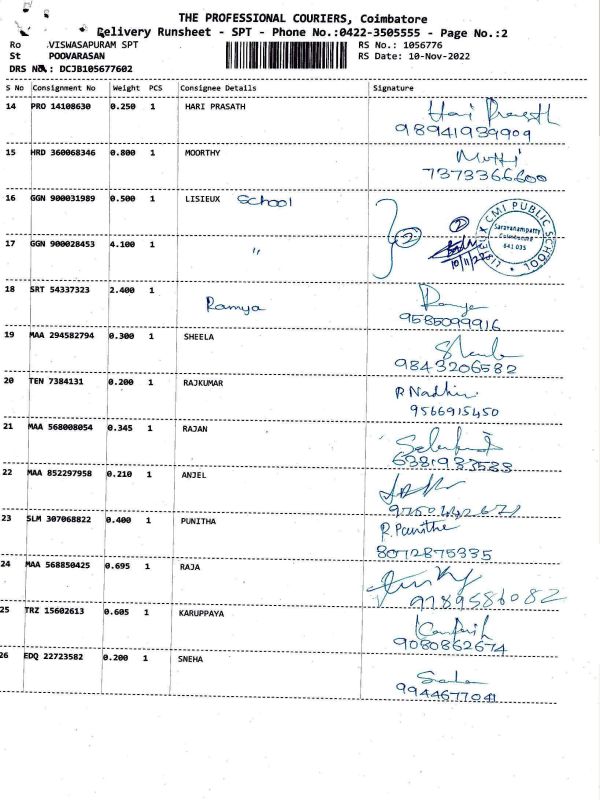 THE PROFESSIONAL COURIERS, Coimbatore
Delivery Runsheet - SPT - Phone No.:0422-3505555 - Page No.:2
Ro VISWASAPURAM SPT RS No.: 1056776
St POOVARASAN RS Date: 10-Nov-2022
DRS No.: DCJB105677602
S No Consignment No Weight PCS Consignee Details Signature
14 PRO 14108630 0.250 1 HARI PRASATH Hari Prasath
98941939909
15 HRD 360068346 0.800 1 MOORTHY
7373366600
16 GGN 900031989 0.500 1 LISIEUX School
LISIEUX CMI PUBLIC SCHOOL
Saravanampatty
Coimbatore
641 035
2
17 GGN 900028453 4.100 1 "
10/11/22
18 SRT 54337323 2.400 1 Ramya Ramya
9585099916
19 MAA 294582794 0.300 1 SHEELA
9843206582
20 TEN 7384131 0.200 1 RAJKUMAR R Nadhiv
9566915450
21 MAA 568008054 0.345 1 RAJAN
22 MAA 852297958 0.210 1 ANJEL
23 SLM 307068822 0.400 1 PUNITHA R. Punitha
8072875335
24 MAA 568850425 0.695 1 RAJA
9789586082
25 TRZ 15602613 0.605 1 KARUPPAYA
9080862674
26 EDQ 22723582 0.200 1 SNEHA
9944677041